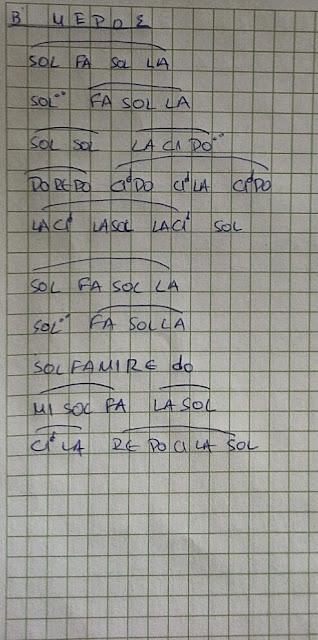 Β' ΜΕΡΟΣ
SOL FA SOL LA
SOL¨ FA SOL LA
SOL SOL LA CI DO¨
DO RE DO CIᵈDO CIᵈLA CIᵈDO
LA CIᵈ LA SOL LA CIᵈ SOL
SOL FA SOL LA
SOL¨ FA SOL LA
SOL FA MI RE do
MI SOL FA LA SOL
CIᵈ LA RE DO CI LA SOL